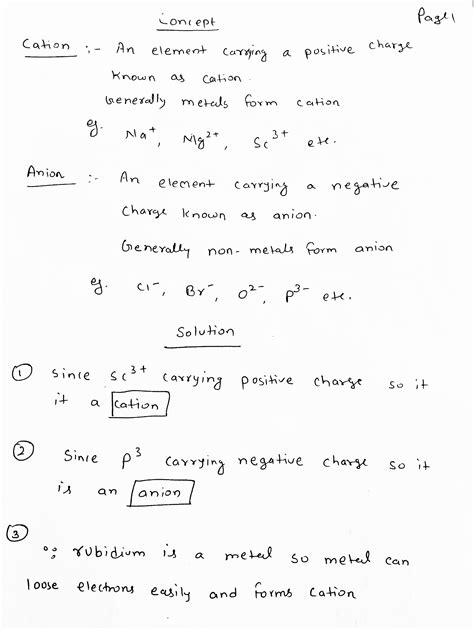 Concept
Page1
Cation :- An element carrying a positive charge
known as cation.
Generally metals form cation
eg. Na⁺, Mg²⁺, Sc³⁺ etc.
Anion :- An element carrying a negative
charge known as anion.
Generally non-metals form anion
eg. Cl⁻, Br⁻, O²⁻, P³⁻ etc.
Solution
① Since Sc³⁺ carrying positive charge so it
it a cation
② Since P³ carrying negative charge so it
is an anion
③
∵ rubidium is a metal so metal can
loose electrons easily and forms cation